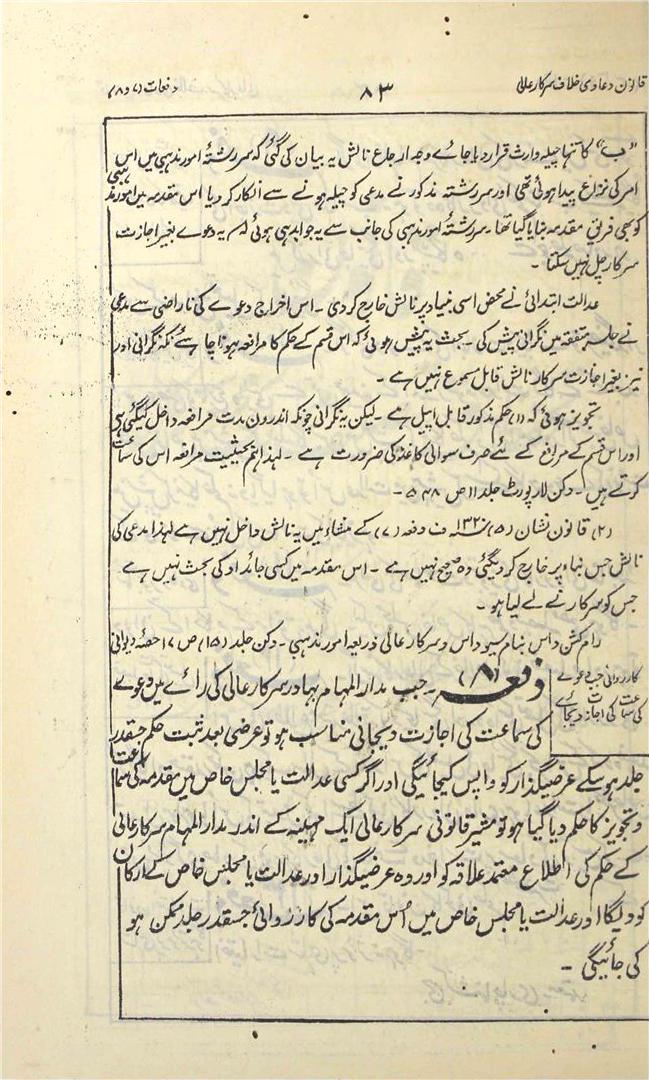 قانون دعاوی خلاف سرکار عالی
۸۳
دفعات (۷ و ۸)
"ب" کا تنہا چیلہ وارث قرار دیا جائے وجہ ارجاع نالش یہ بیان کی گئی کہ سررشتۂ امور مذہبی میں اس
امر کی نزاع پیدا ہوئی تھی اور سررشتہ مذکور نے مدعی کو چیلہ ہونے سے انکار کر دیا اس مقدمہ میں امور مذہبی
کو بھی فریق مقدمہ بنایا گیا تھا۔ سررشتۂ امور مذہبی کی جانب سے یہ جوابدہی ہوئی کہ یہ دعوے بغیر اجازت
سرکار چل نہیں سکتا۔
عدالت ابتدائی نے محض اسی بنیاد پر نالش خارج کر دی۔ اس اخراج دعوے کی ناراضی سے مدعی
نے جلسہ متفقہ میں نگرانی پیش کی۔ بحث یہ پیش ہوئی کہ اس قسم کے حکم کا مرافعہ ہونا چاہئے نکہ نگرانی اور
نیز بغیر اجازت سرکار نالش قابل سموع نہیں ہے۔
تجویز ہوئی کہ (۱) حکم مذکور قابل اپیل ہے۔ لیکن یہ نگرانی چونکہ اندرون مدت مرافعہ داخل کیگئی ہے
اور اس قسم کے مرافع کے لئے صرف سوالی کاغذ کی ضرورت ہے۔ لہذا ہم بحیثیت مرافعہ اس کی سماعت
کرتے ہیں۔ دکن لا رپورٹ جلد ۱۱ ص ۵۴۸۔
(۲) قانون نشان (۵) ۱۳۲۰ ف دفعہ (۷) کے منشاء میں یہ نالش داخل نہیں ہے لہذا مدعی کی
نالش جس بناء پر خارج کر دیگئی وہ صحیح نہیں ہے۔ اس مقدمہ میں کسی جائداد کی بحث نہیں ہے
جس کو سرکار نے لے لیا ہو۔
رام کشن داس بنام سیوداس و سرکار عالی ذریعہ امور مذہبی۔ دکن جلد (۱۵) ص ۱۷ حصۂ دیوانی
کارروائی جبکہ دعوے
کی سماعت کی اجازت دیجائے
دفعہ (۸)۔ جب مدار المہام بہادر سرکار عالی کی رائے میں دعوے
کی سماعت کی اجازت دیجانی مناسب ہو تو عرضی بعد ثبت حکم جسقدر
جلد ہو سکے عرضیگذار کو واپس کیجائیگی اور اگر کسی عدالت یا مجلس خاص میں مقدمہ کی سماعت
و تجویز کا حکم دیا گیا ہو تو مشیر قانونی سرکار عالی ایک مہینہ کے اندر مدار المہام سرکار عالی
کے حکم کی اطلاع معتمد علاقہ کو اور وہ عرضیگذار اور عدالت یا مجلس خاص کے ارکان
کو دیگا اور عدالت یا مجلس خاص میں اُس مقدمہ کی کارروائی جسقدر جلد ممکن ہو
کی جائیگی۔